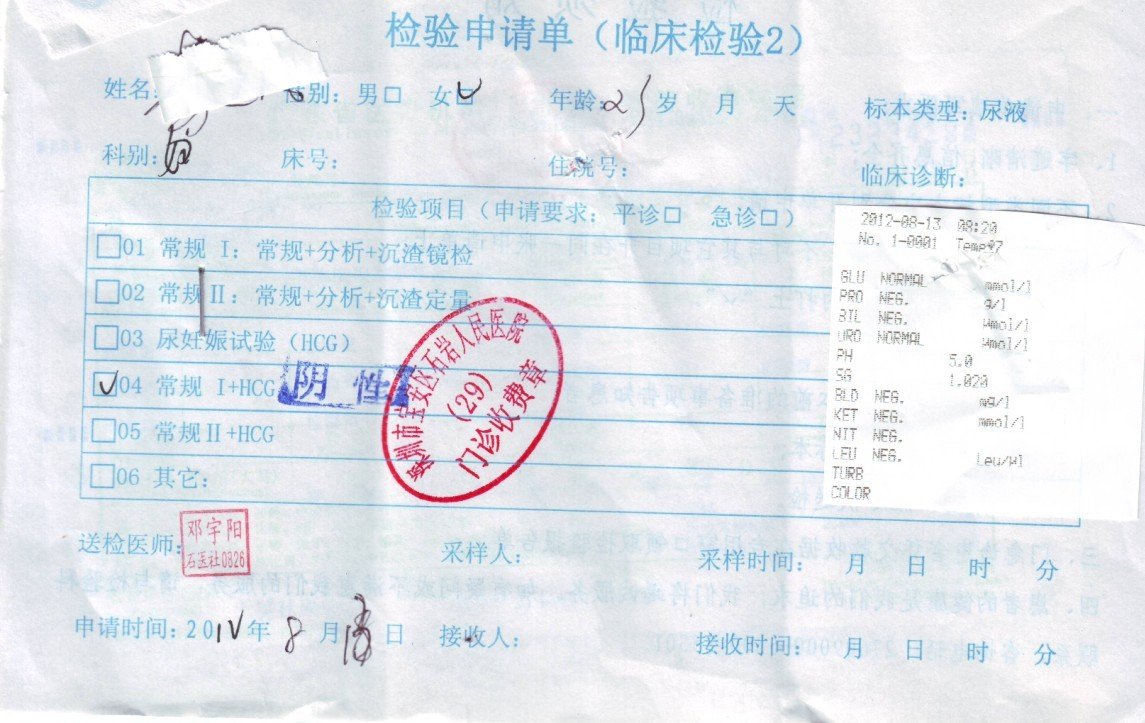 检验申请单（临床检验2）
姓名： 性别：男□ 女□ 年龄： 岁 月 天 标本类型：尿液
科别： 床号： 住院号： 临床诊断：
检验项目（申请要求：平诊□ 急诊□）
□01 常规 I：常规+分析+沉渣镜检
□02 常规Ⅱ：常规+分析+沉渣定量
□03 尿妊娠试验（HCG）
□04 常规 I+HCG 阴性
□05 常规Ⅱ+HCG
□06 其它：
深圳市宝安区石岩人民医院
(29)
门诊收费章
2012-08-13 08:20
No. 1-0001
GLU NORMAL mmol/l
PRO NEG. g/l
BIL NEG. umol/l
URO NORMAL umol/l
PH 5.0
SG 1.020
BLD NEG. mg/l
KET NEG. mmol/l
NIT NEG.
LEU NEG. Leu/ul
TURB
COLOR
送检医师： 邓宇阳 采样人： 采样时间： 月 日 时 分
石医社0826
申请时间：2012年 8 月 日 接收人： 接收时间： 月 日 时 分